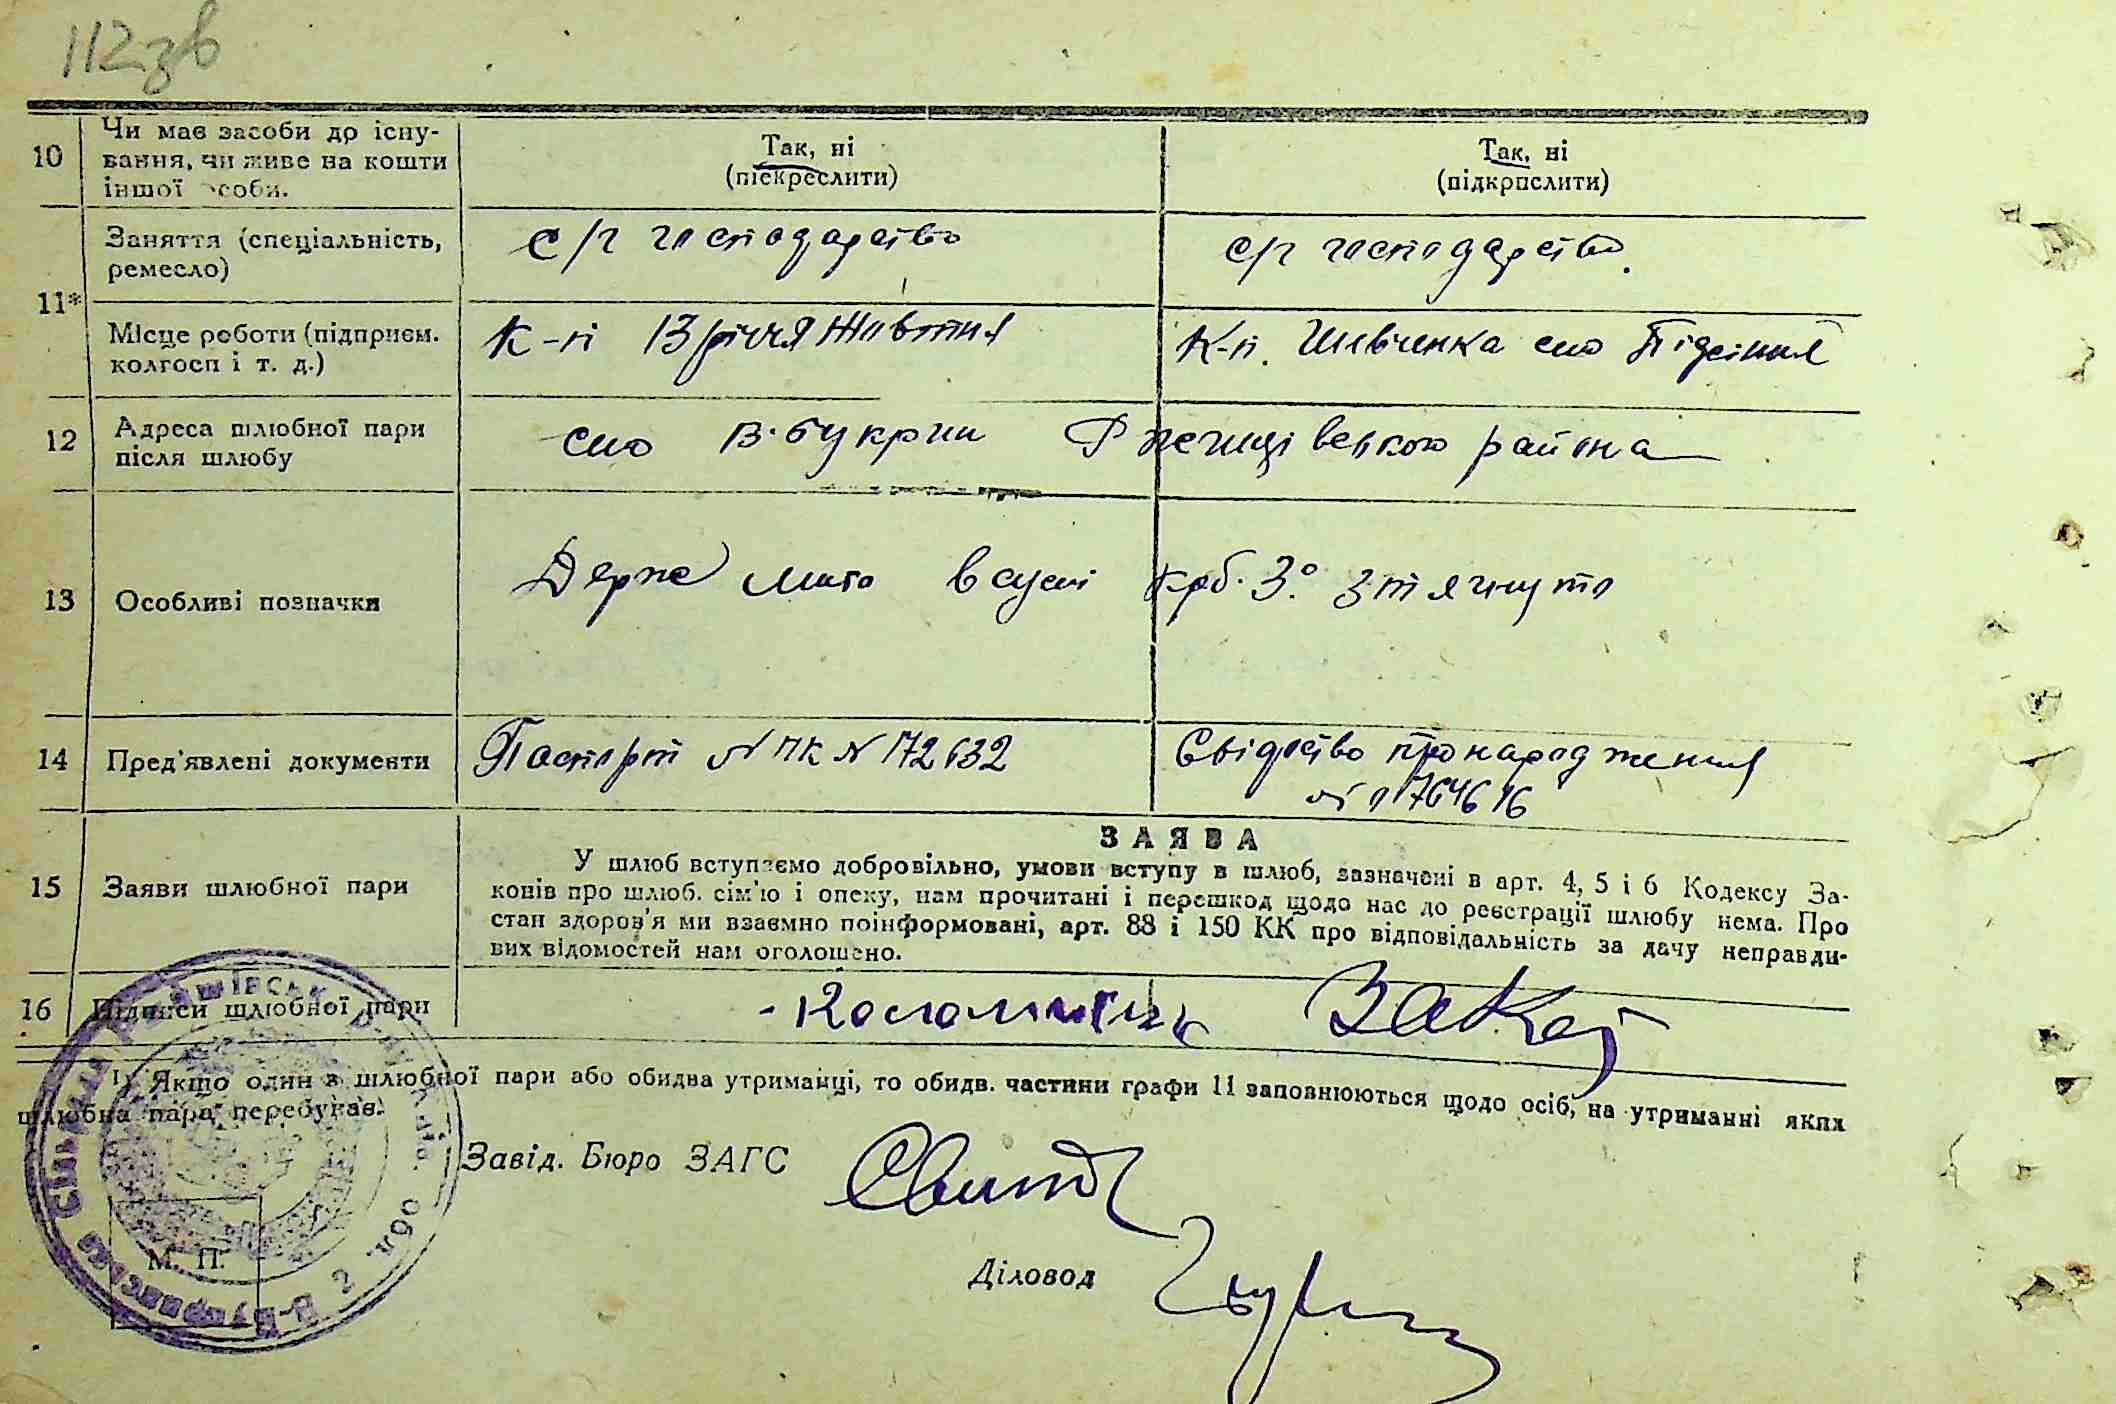 112зв
10
Чи має засоби до існу-
вання, чи живе на кошти
іншої особи.
Так, ні
(підкреслити)
Так, ні
(підкрислити)
11*
Заняття (спеціальність,
ремесло)
с/г господарство
с/г господарство.
Місце роботи (підприєм.
колгосп і т. д.)
К-п 13 річчя Жовтня
К-п. Шевченка село Підсіння
12
Адреса шлюбної пари
після шлюбу
село В. Букрин Ржищівського района
13
Особливі позначки
Держ мито в сумі крб. 3.° зтягнуто
14
Пред'явлені документи
Паспорт № ПК № 172632
Свідоство про народження
№ 1764616
15
Заяви шлюбної пари
ЗАЯВА
У шлюб вступаємо добровільно, умови вступу в шлюб, зазначені в арт. 4, 5 і 6 Кодексу За-
конів про шлюб. сім'ю і опеку, нам прочитані і перешкод щодо нас до реєстрації шлюбу нема. Про
стан здоров'я ми взаємно поінформовані, арт. 88 і 150 КК про відповідальність за дачу неправди-
вих відомостей нам оголошено.
16
Підписи шлюбної пари
1) Якщо один з шлюбної пари або обидва утриманці, то обидв. частини графи 11 заповнюються щодо осіб, на утриманні яких
шлюбна пара перебуває.
Завід. Бюро ЗАГС
Діловод
М. П.
В-Букринська сільська